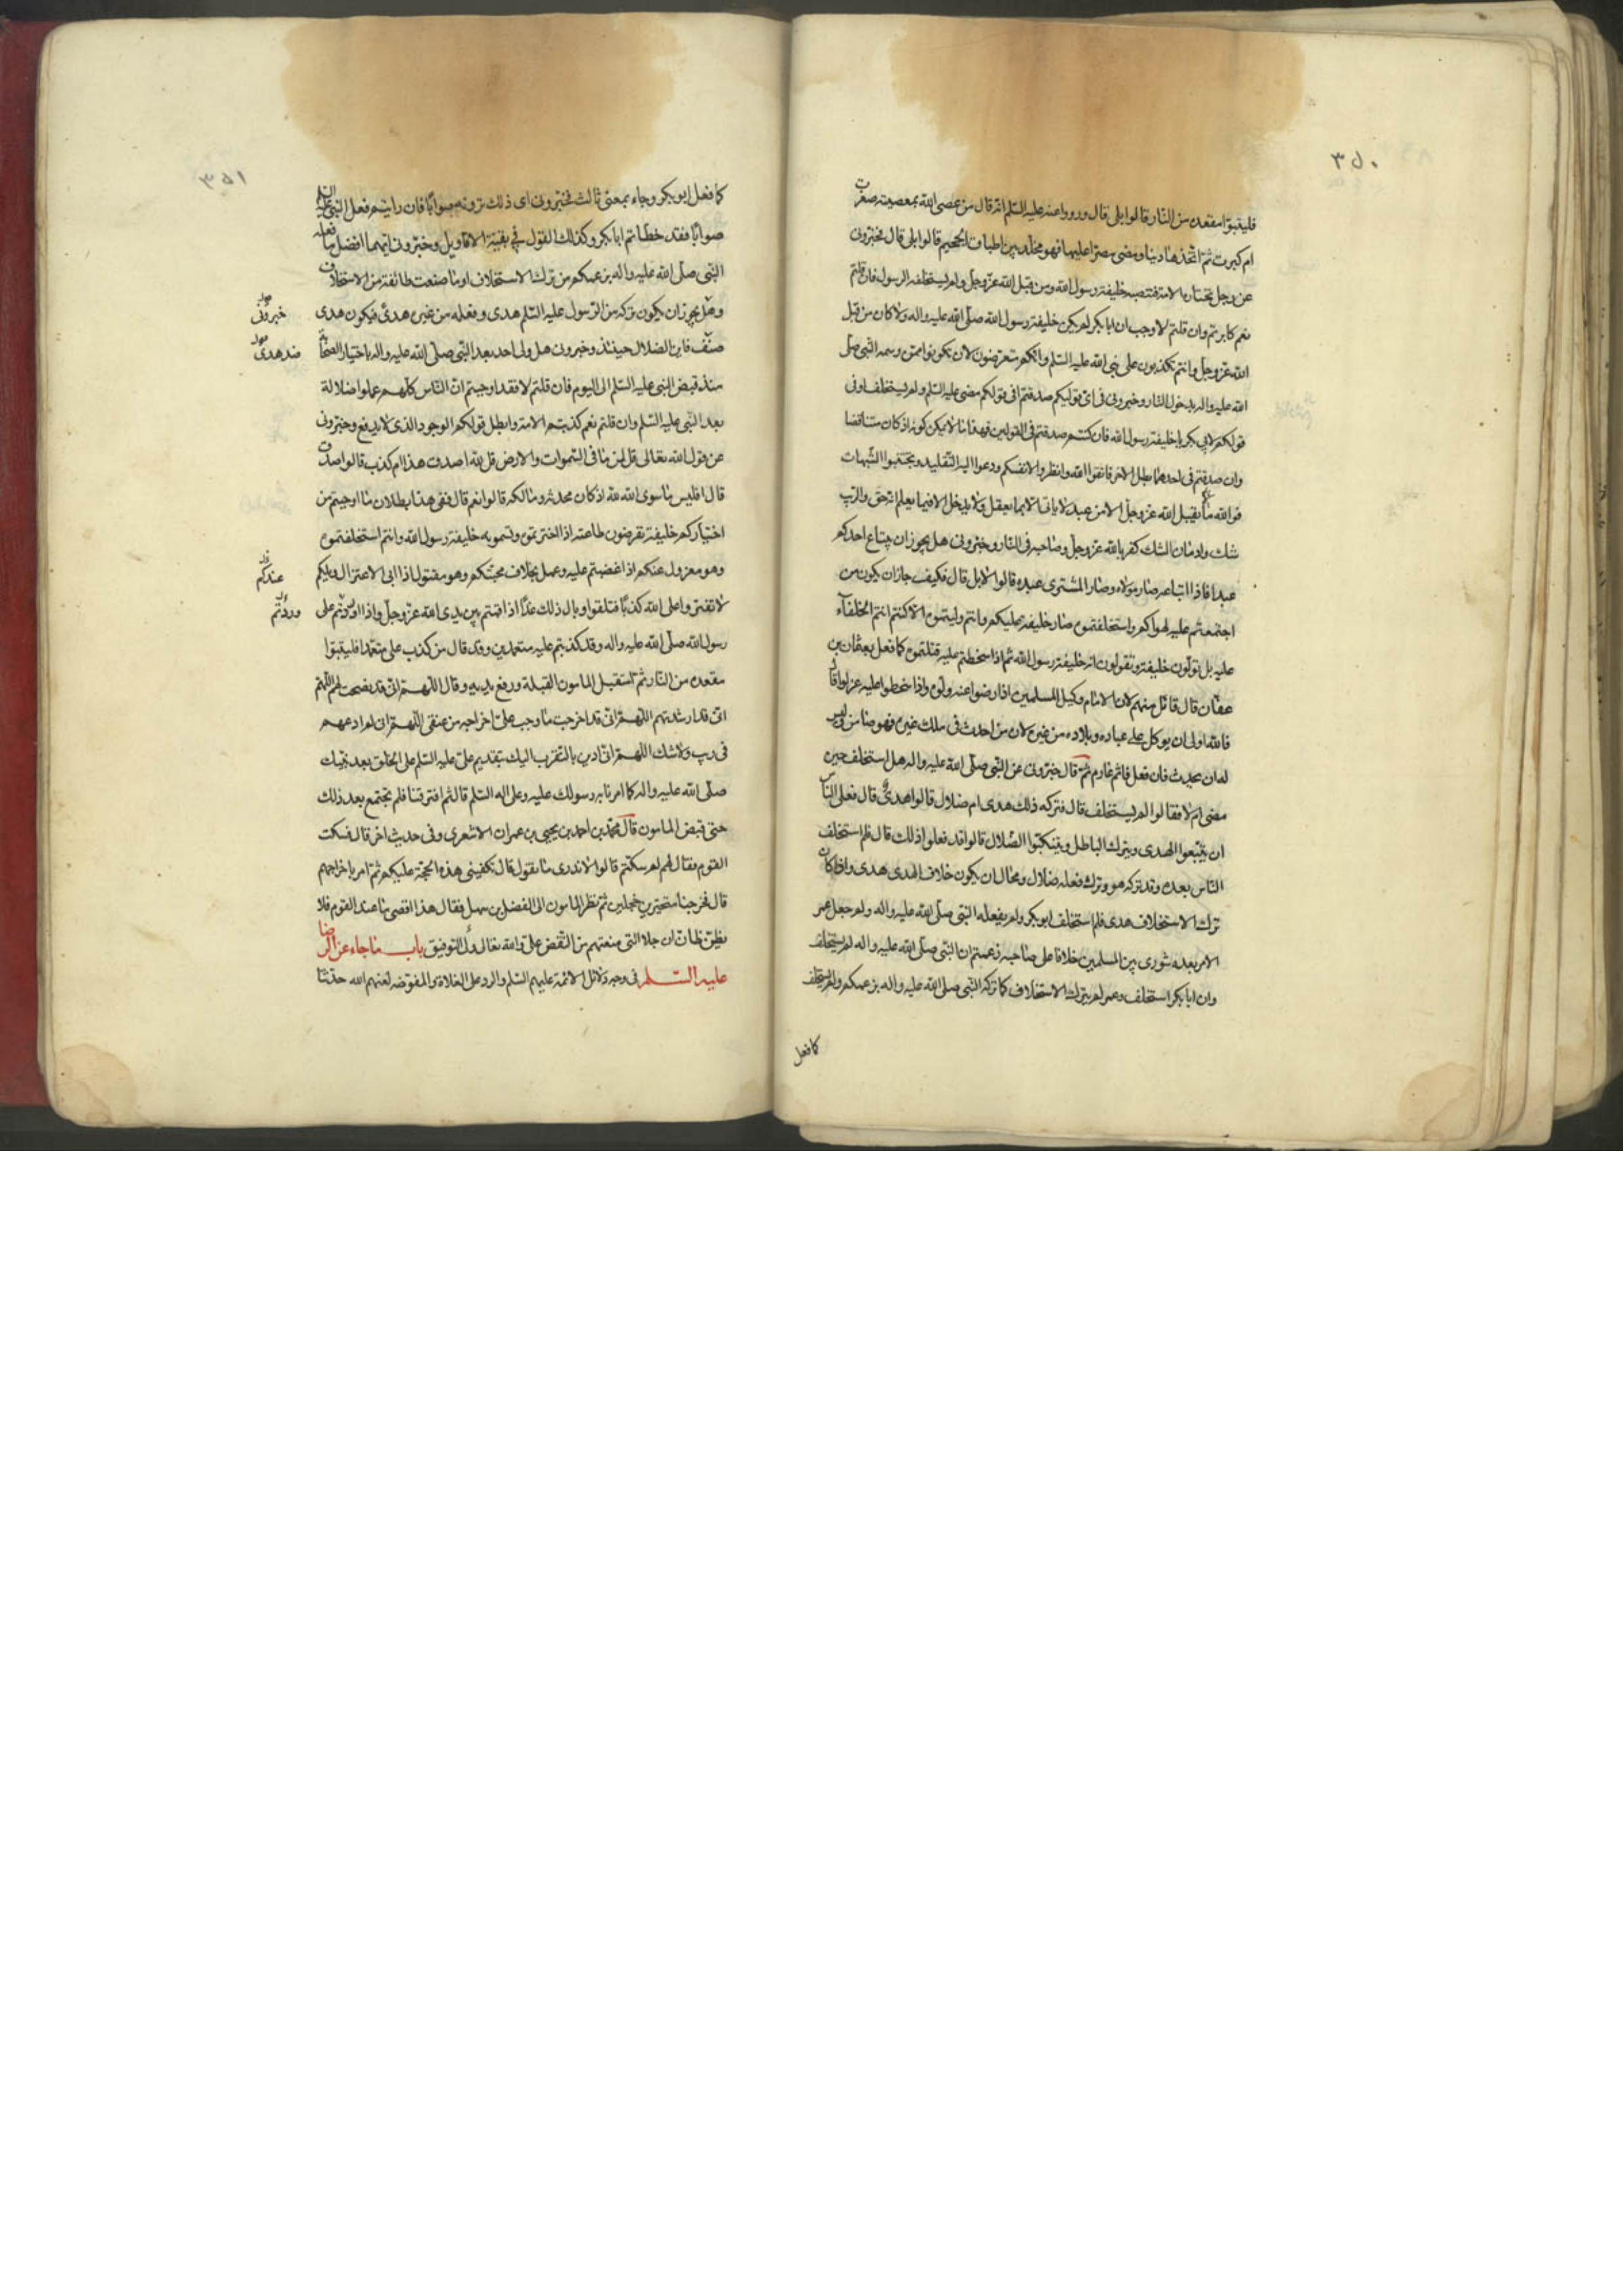 ٣٥٠
فليتبوّا مقعده من النّار قالوا بلى قال ورووا عنه عليه السّلم انّه قال من عصى الله بمعصيته صغرت
ام كبرت ثمّ اتّخذها دينا ومضى مصرّا عليها فهو مخلّد بين اطباق الجحيم قالوا بلى قال فخبّرونى
عن رجل تختاره الامة فتنصبه خليفة رسول الله ومن قبل الله عزّ وجلّ ولم يستخلفه الرسول فان قلتم
نعم كابرتم وان قلتم لا وجب ان ابا بكر لم يكن خليفة رسول الله صلّى الله عليه واله ولا كان من قبل
الله عزّ وجلّ وانتم تكذبون على نبى الله عليه السّلم وانّكم متعرضون لان تكونوا ممن وسمه النبى صلّى
الله عليه واله بدخول النّار وخبرونى فى اىّ قوليكم صدقتم افى قولكم مضى عليه السّلم ولم يستخلف او فى
قولكم لابى بكر يا خليفة رسول الله فان كنتم صدقتم فى القولين فهذا ما لا يمكن كونه اذ كان متناقضا
وان صدقتم فى احدهما بطل الاخر فاتقوا الله وانظروا لانفسكم ودعوا التّقليد وتجنّبوا الشّبهات
فوالله ما يقبل الله عزّ وجلّ الا من عبد لا ياتى الا بما يعقل ولا يدخل الا فيما يعلم انّه حق والرّيب
شك وادمان الشك كفر بالله عزّ وجلّ وصاحبه فى النّار وخبّرونى هل يجوز ان يبتاع احدكم
عبدا فاذا ابتاعه صار مولاه وصار المشترى عبده قالوا لا بل قال فكيف جاز ان يكون من
اجتمعتم عليه لهواكم واستخلفتموه صار خليفة عليكم وانتم وليتموه الا كنتم انتم الخلفآء
عليه بل تولّون خليفة وتقولون انه خليفة رسول الله ثمّ اذا سخطتم عليه قتلتموه كما فعل بعثمان بن
عفّان قال قائل منهم لان الامام وكيل المسلمين اذا رضوا عنه ولّوه واذا سخطوا عليه عزلوه قال
فالله اولى ان يوكل على عباده وبلاده من غيره لان من احدث فى ملك غيره فهو ضامن وليس
له ان يحدث فان فعل فاثم غارم ثمّ قال خبّرونى عن النّبى صلّى الله عليه واله هل استخلف حين
مضى ام لا فقالوا لم يستخلف قال فتركه ذلك هدى ام ضلال قالوا هدىً قال فعلى النّاس
ان يتّبعوا الهدى ويتركوا الباطل ويتنكّبوا الضّلال قالوا قد فعلوا ذلك قال فلم استخلف
النّاس بعده وقد تركه هو وترك فعله ضلال ومحال ان يكون خلاف الهدى هدى واذا كان
ترك الاستخلاف هدى فلم استخلف ابو بكر ولم يفعله النّبى صلّى الله عليه واله ولم جعل عمر
الامر بعده شورى بين المسلمين خلافا على صاحبه زعمتم ان النّبى صلّى الله عليه واله لم يستخلف
وان ابا بكر استخلف وعمر لم يترك الاستخلاف كما تركه النّبى صلى الله عليه واله بزعمكم ولم يستخلف
كما فعل
٣٥١
كما فعل ابو بكر وجاء بمعنى ثالث فخبّرونى اى ذلك ترونه صوابًا فان رايتم فعل النّبى عليه السّلم
صوابًا فقد خطّاتم ابا بكر وكذلك القول فى بقيّة الاقاويل وخبّرونى ايّهما افضل ما فعله
النّبى صلّى الله عليه واله بزعمكم من ترك الاستخلاف او ما صنعت طائفة من الاستخلاف
وهل يجوز ان يكون تركه من الرّسول عليه السّلم هدى وفعله من غيره هدىً فيكون هدى
خبرونى
ضدّ فاين الضلال حينئذ وخبرونى هل ولى احد بعد النّبى صلّى الله عليه واله باختيار الصّحابة
ضد هدى
منذ قبض النبى عليه السّلم الى اليوم فان قلتم لا فقد اوجبتم انّ النّاس كلّهم عملوا ضلالة
بعد النّبى عليه السّلم وان قلتم نعم كذبتم الامة وابطل قولكم الوجود الذى لا يدفع وخبّرونى
عن قول الله تعالى قل لمن ما فى السّموات والارض قل لله اصدق هذا ام كذب قالوا صدق
قال افليس ما سوى الله لله اذ كان محدثه ومالكه قالوا نعم قال ففى هذا بطلان ما اوجبتم من
اختياركم خليفة تفرضون طاعته اذا اخترتموه وتسمونه خليفة رسول الله وانتم استخلفتموه
وهو معزول عنكم اذا غضبتم عليه وعمل بخلاف محبّتكم وهو مقتول اذا ابى الاعتزال ويلكم
عندكم
لا تفتروا على الله كذبًا فتلقوا وبال ذلك غدًا اذا قمتم بين يدى الله عزّ وجلّ واذا وردتم على
وردتم
رسول الله صلّى الله عليه واله وقد كذبتم عليه متعمدين وقد قال من كذب علىّ متعمّدا فليتبوّا
مقعده من النّار ثمّ استقبل المامون القبلة ورفع يديه وقال اللّهمّ انّى قد نصحت لهم اللّهم
انّى قد ارشدتهم اللّهمّ انّى قد اخرجت ما وجب علىّ اخراجه من عنقى اللّهمّ انى لم ادعهم
فى ريب ولا شك اللّهمّ انّى ادين بالتّقرب اليك بتقديم علىّ عليه السّلم على الخلق بعد نبيّك
صلّى الله عليه واله كما امرنا به رسولك عليه وعلى اله السّلم قال ثم افترقنا فلم يجتمع بعد ذلك
حتى قبض المامون قال محمّد بن احمد بن يحيى بن عمران الاشعرى وفى حديث اخر قال فسكت
القوم فقال لهم لم سكتّم قالوا لا ندرى ما نقول قال تكفينى هذه الحجّة عليكم ثمّ امر باخراجهم
قال فخرجنا متحيّرين خجلين ثمّ نظر المامون الى الفضل بن سهل فقال هذا اقصى ما عند القوم فلا
يظنّ ظانّ ان جلالتى منعتهم من النّقض علىّ والله تعالى ولىّ التوفيق باب ما جاء عن الرّضا
عليه السّلم فى وجه دلائل الائمّة عليهم السّلم والرد على الغلاة والمفوّضه لعنهم الله حدّثنا